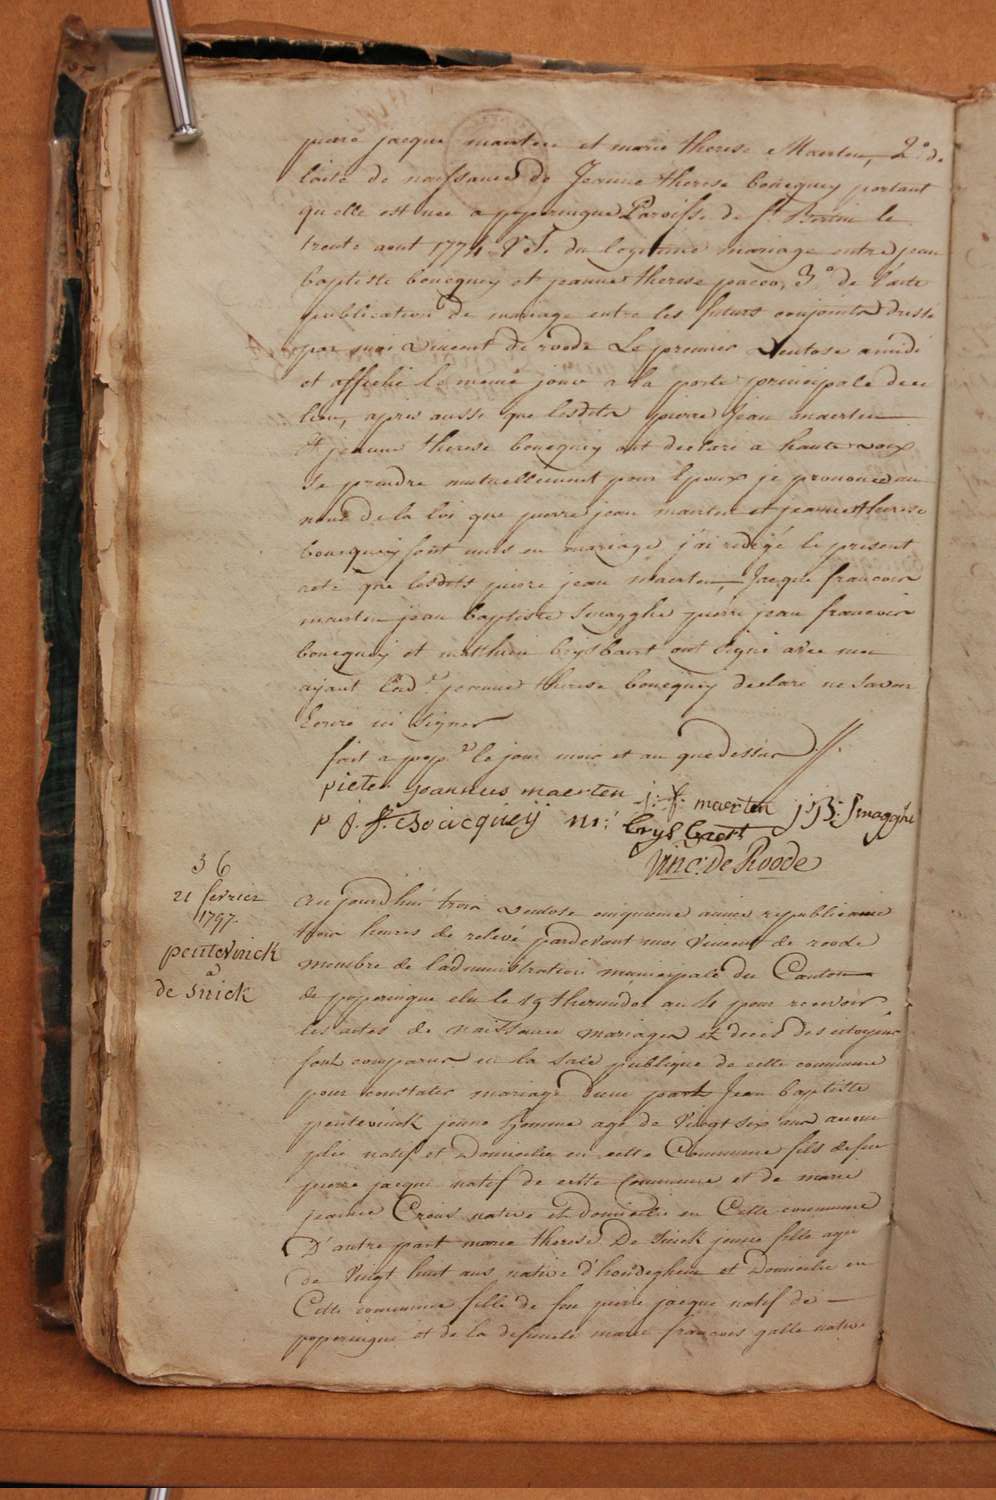 pierre jacque maerten et marie therese Maerten, 2.° de
lacte de naissance de Jeanne therese boucquey portant
quelle est nee a poperingue Paroisse de St Bertin le
trente aout 1774 V.S. du legitime mariage entre jean
baptiste boucquey et jeanne therese pacco, 3.° de lacte
publication de mariage entre les futurs conjoints dressé
par moi vincent de roode Le premier ventose a midi
et affiché le meme jour a la porte principale de ce
lieu, apres aussi que lesdits pierre Jean maerten
et jeanne therese boucquey ont declaré a haute voix
se prendre mutuellement pour Epoux je prononce au
nom de la loi que pierre jean maerten et jeanne therese
boucquey sont unis en mariage, j'ai redigé le present
acte que lesdits pierre jean maerten, Jacque francois
maerten jean baptiste Smagghe pierre jean francois
boucquey et mathieu brysbaert ont signé avec moi
ayant lad.e jeanne therese boucquey declaré ne savoir
Ecrire ni signer
fait a pop.e le jour mois et an que dessus //.
pieter joannes maerten j: f: maerten j: B: Smagghe
p j. f. Boucqueij m: brysbaert
Vinc: de Roode
36
21 fevrier
1797.
peutevinck
a
de snick
aujourdhui trois ventose cinquieme année republicaine
trois heures de relevé pardevant moi Vincent de roode
membre de l'administration municipale du Canton
de poperingue elu le 19 thermidor an 4 pour recevoir
les actes de naissance mariages et deces des citoyens
sont comparus en la sale publique de cette commune
pour constater mariage d'une part Jean baptiste
peutevinck jeune homme agé de Vingt six ans
natif et Domicilié en cette Commune fils de feu
pierre jacque natif de cette Commune et de marie
jeanne Crois native et domicilié en Cette commune
D'autre part marie therese De Snick jeune fille agee
de Vingt huit ans native d'hondeghem et Domicilie en
Cette commune fille de feu pierre jacque natif de
poperingue et de la defuncte marie francois galle native